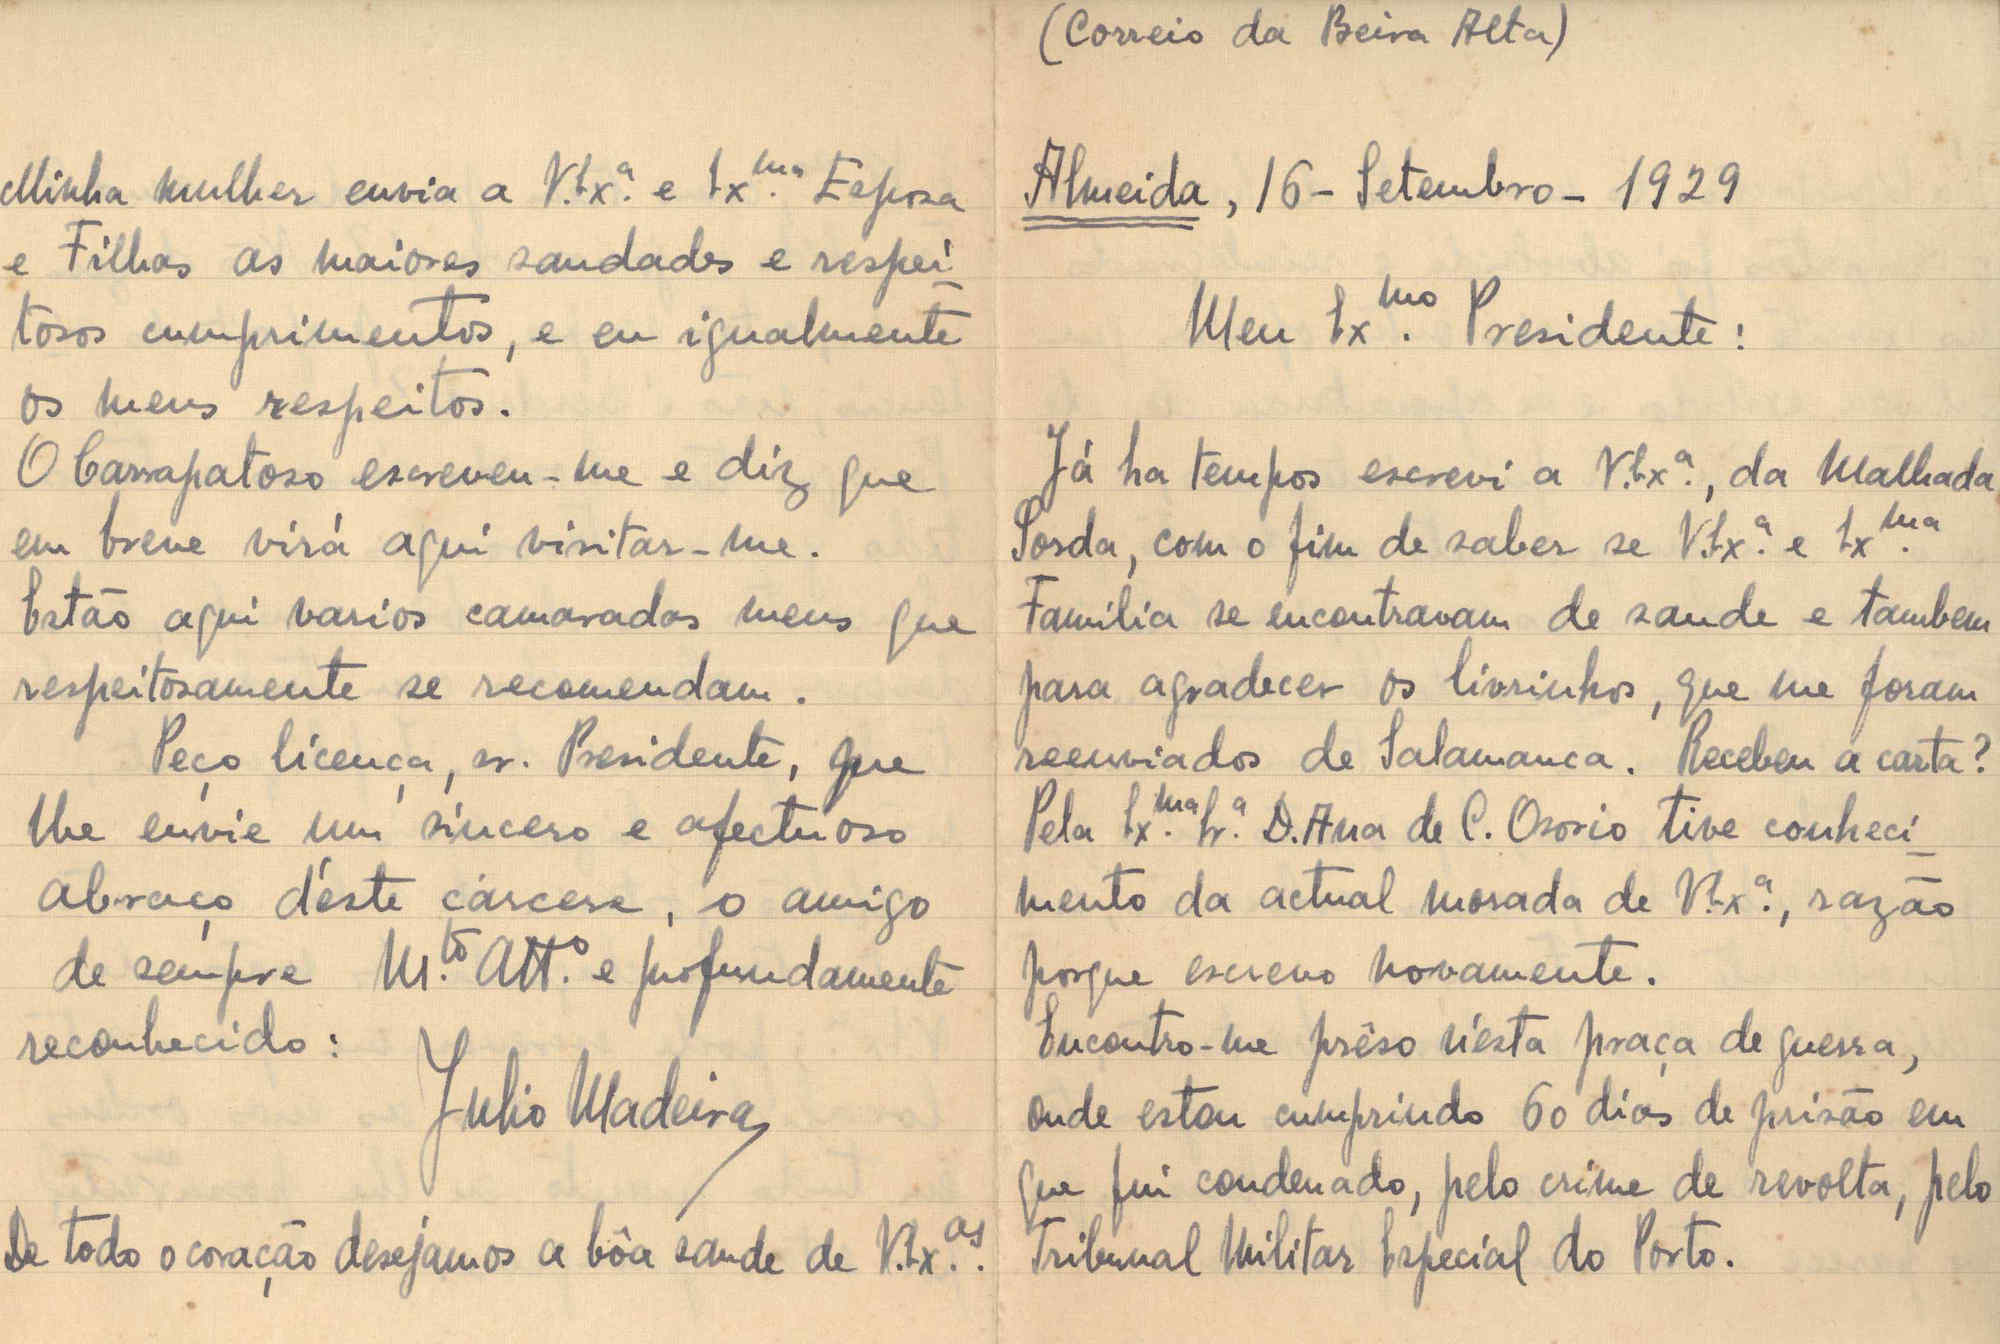 (Correio da Beira Alta)
Almeida, 16 - Setembro - 1929
Meu Ex.mo Presidente:
Já ha tempos escrevi a V.Ex.a, da Malhada
Sorda, com o fim de saber se V.Ex.a e Ex.ma
Família se encontravam de saude e tambem
para agradecer os livrinhos, que me foram
reenviados de Salamanca. Recebeu a carta?
Pela Ex.ma Sr.a D. Ana de C. Osorio tive conheci-
mento da actual morada de V.Ex.a, razão
porque escrevo novamente.
Encontro-me prêso n'esta praça de guerra,
onde estou cumprindo 60 dias de prisão em
que fui condenado, pelo crime de revolta, pelo
Tribunal Militar Especial do Porto.
Minha mulher envia a V.Ex.a e Ex.ma Esposa
e Filhas as maiores saudades e respei-
tosos cumprimentos, e eu igualmente
os meus respeitos.
O Carrapatoso escreveu-me e diz que
em breve virá aqui visitar-me.
Estão aqui varios camaradas meus que
respeitosamente se recomendam.
Peço licença, sr. Presidente, que
lhe envie um sincero e afectuoso
abraço d'éste cárcere, o amigo
de sempre M.to Att.o e profundamente
reconhecido:
Julio Madeira
De todo o coração desejamos a bôa saude de V.Ex.as.